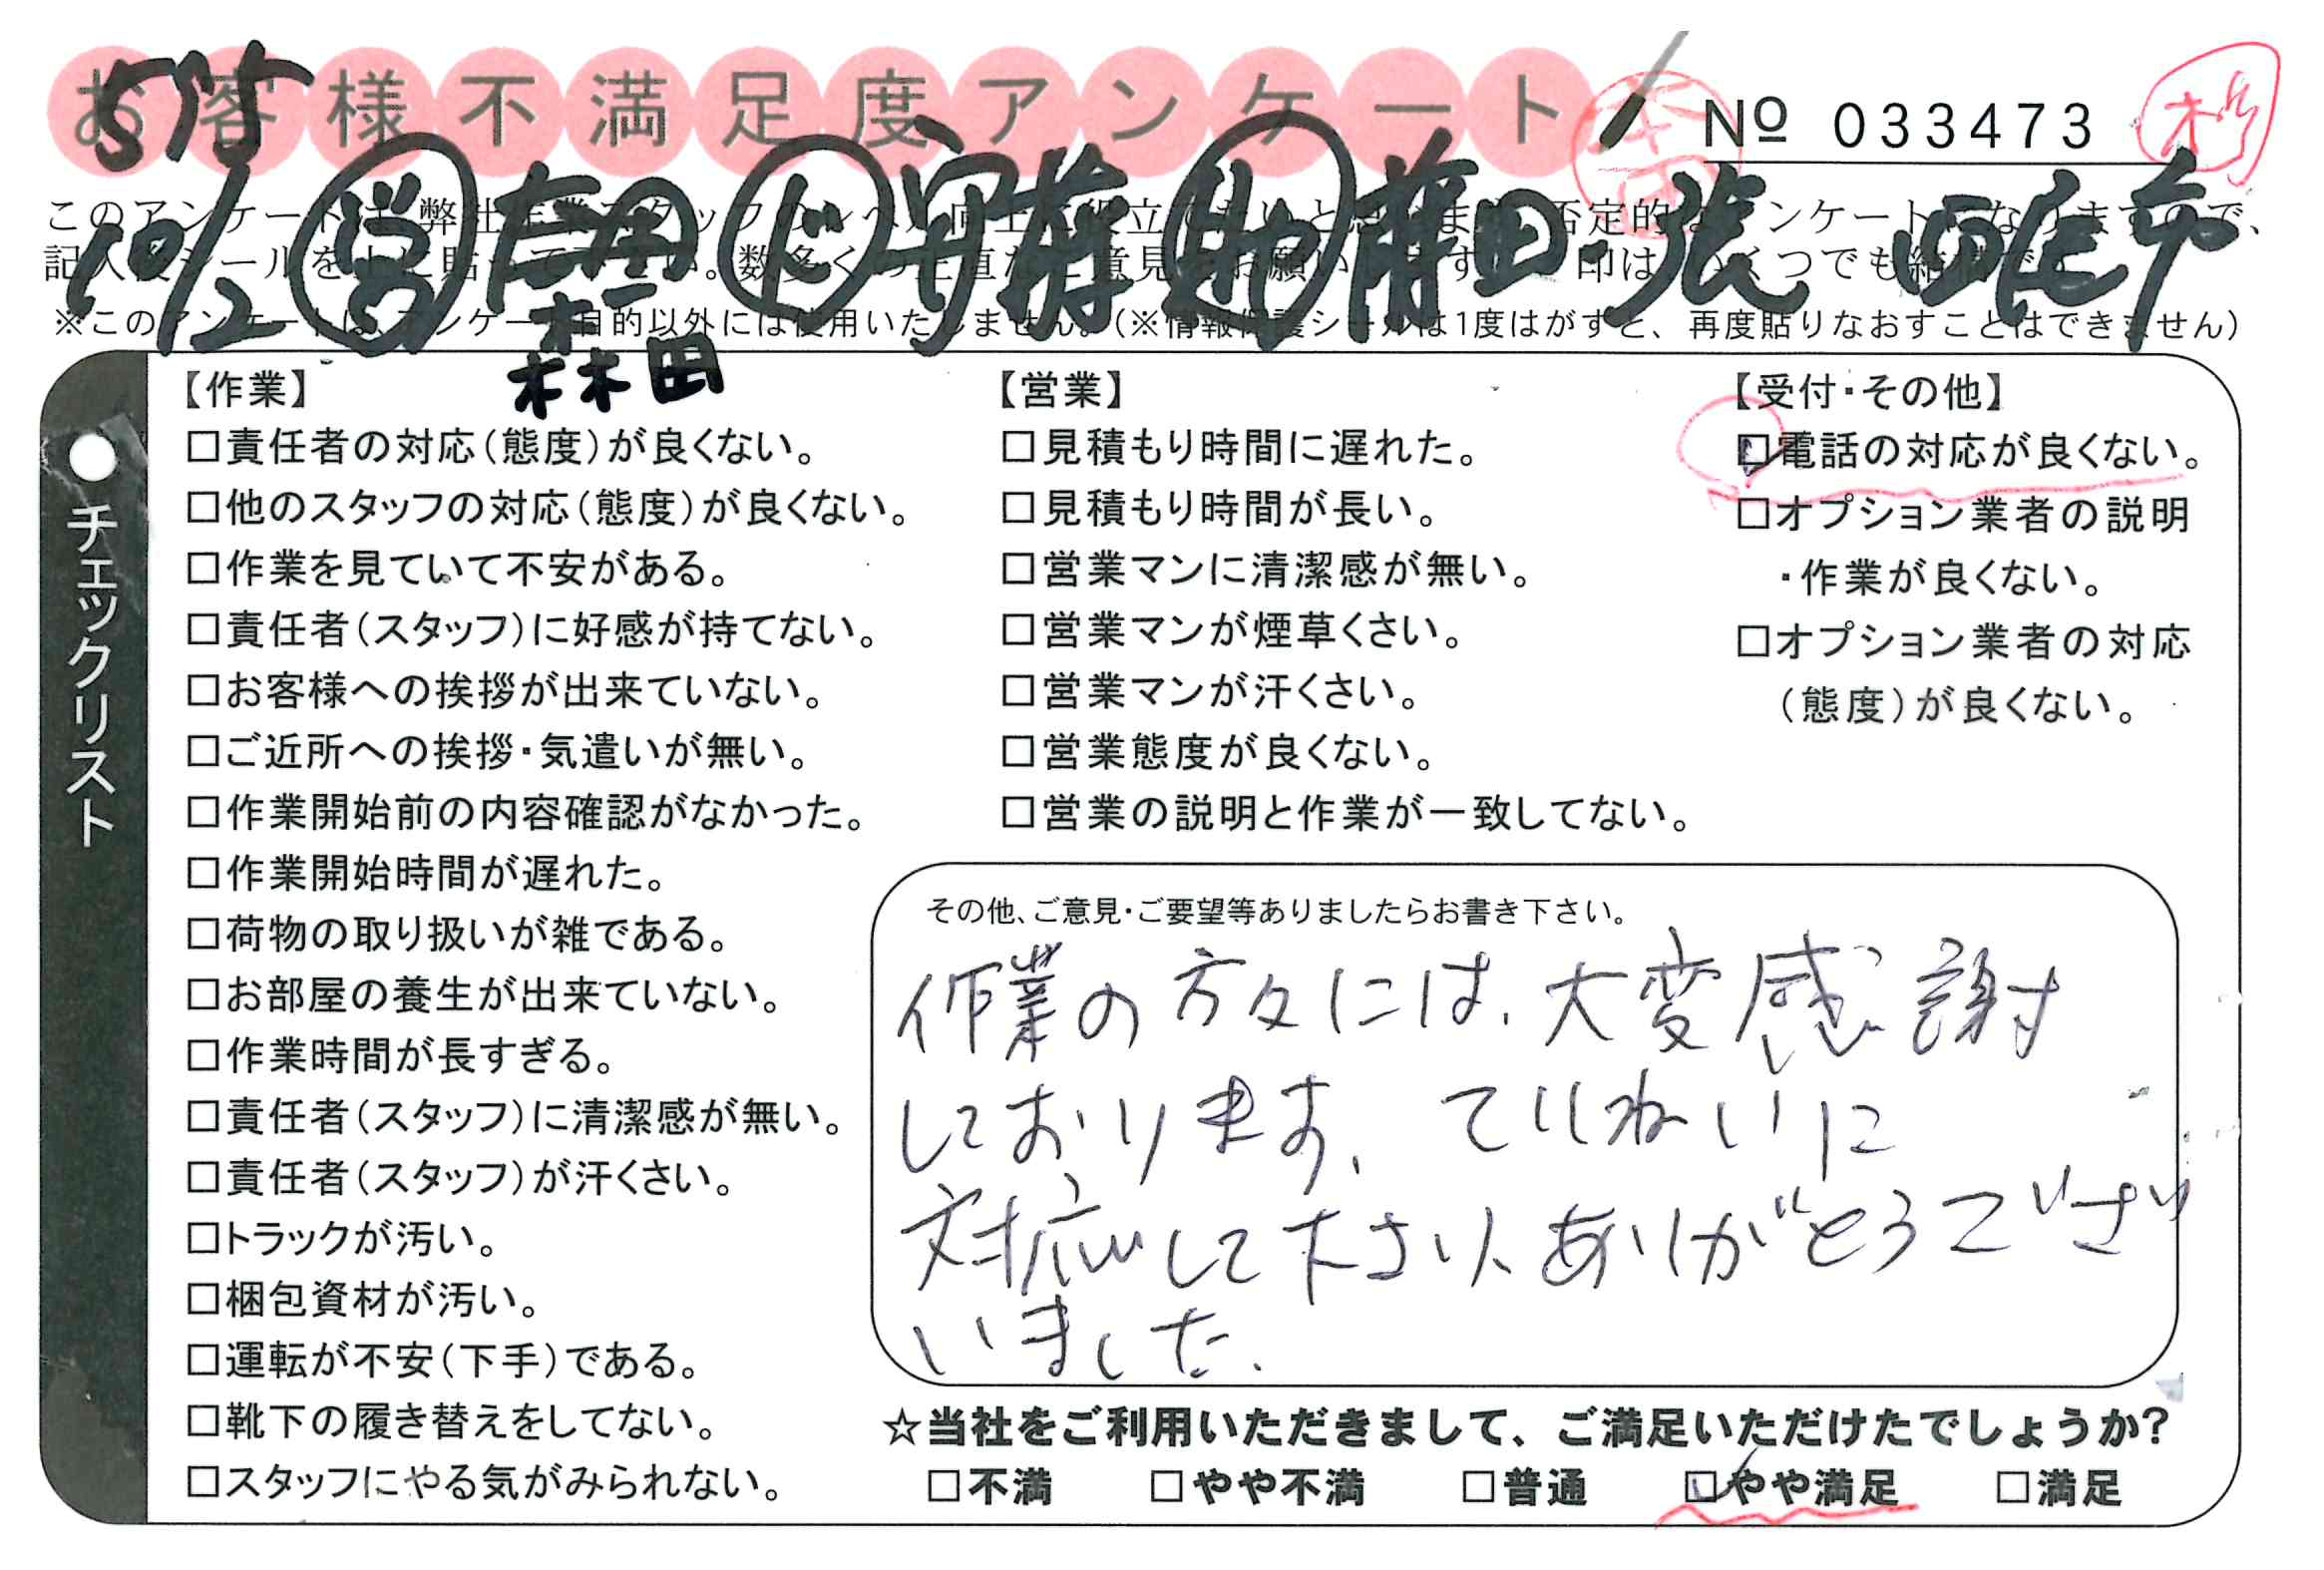 お客様不満足度アンケート
№ 033473
575
10/2 営 ド 安藤 助 前田・張 四街道市
森田
このアンケートは、弊社作業スタッフのレベル向上に役立てたいと思います。否定的なアンケートになりますので、
記入後シールを上に貼って下さい。数多くの正直なご意見をお願いします。✓印はいくつでも結構です。
※このアンケートは、アンケート目的以外には使用いたしません。(※情報保護シールは1度はがすと、再度貼りなおすことはできません)
チェックリスト
【作業】
□責任者の対応(態度)が良くない。
□他のスタッフの対応(態度)が良くない。
□作業を見ていて不安がある。
□責任者(スタッフ)に好感が持てない。
□お客様への挨拶が出来ていない。
□ご近所への挨拶・気遣いが無い。
□作業開始前の内容確認がなかった。
□作業開始時間が遅れた。
□荷物の取り扱いが雑である。
□お部屋の養生が出来ていない。
□作業時間が長すぎる。
□責任者(スタッフ)に清潔感が無い。
□責任者(スタッフ)が汗くさい。
□トラックが汚い。
□梱包資材が汚い。
□運転が不安(下手)である。
□靴下の履き替えをしてない。
□スタッフにやる気がみられない。
【営業】
□見積もり時間に遅れた。
□見積もり時間が長い。
□営業マンに清潔感が無い。
□営業マンが煙草くさい。
□営業マンが汗くさい。
□営業態度が良くない。
□営業の説明と作業が一致してない。
【受付・その他】
☑電話の対応が良くない。
□オプション業者の説明
・作業が良くない。
□オプション業者の対応
(態度)が良くない。
その他、ご意見・ご要望等ありましたらお書き下さい。
作業の方々には、大変感謝
しております、ていねいに
対応して下さり、ありがとうござ
いました.
☆当社をご利用いただきまして、ご満足いただけたでしょうか?
□不満 □やや不満 □普通 ☑やや満足 □満足